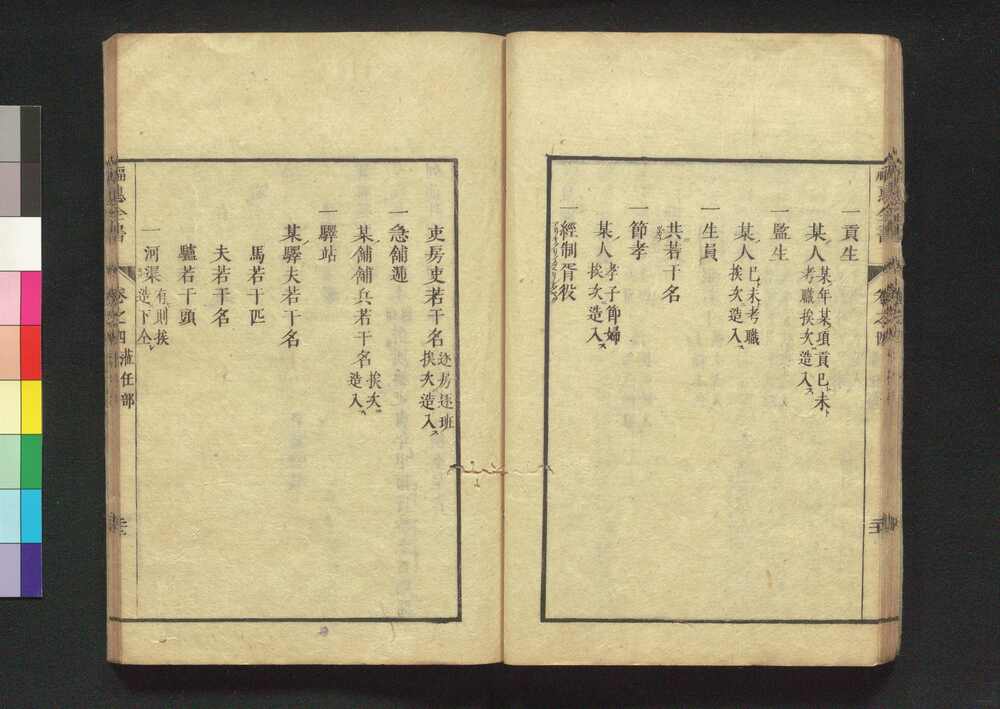 福惠全書 卷之四
一貢生
某人 某年某項貢已未
考職挨次造入
一監生
某人 已未考職
挨次造入
一生員
共若干名
一節孝
某人 孝子節婦
挨次造入
一經制胥役
吏房吏若干名 逐房逐班
挨次造入
一急舖遞
某舖舖兵若干名 挨次
造入
一驛站
某驛夫若干名
馬若干匹
夫若干名
驢若干頭
一河渠 有則挨
造下仝
福惠全書 卷之四 蒞任部